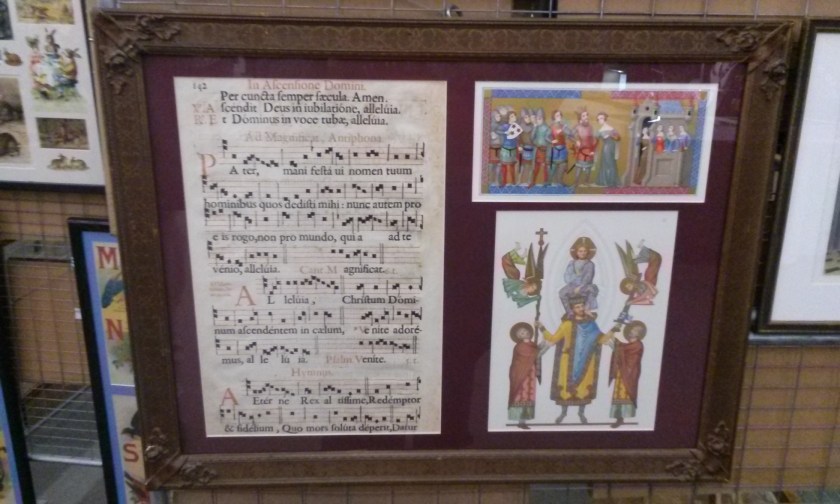 142 In Ascensione Domini.
Per cuncta semper sæcula. Amen.
℣. Ascendit Deus in iubilatione, allelúia.
℟. Et Dominus in voce tubæ, allelúia.
Ad Magnificat, Antiphona.
PAter, mani festa ui nomen tuum
hominibus quos dedisti mihi: nunc autem pro
e is rogo, non pro mundo, qui a ad te
venio, allelúia. Magnificat.
AL lelúia, Christum Domi-
num ascendentem in cælum, * Ve nite adoré-
mus, al le lú ia. Psalm. Venite.
Hymnus.
AEter ne Rex al tissime, Redemptor
& fidelium, Quo mors soluta deperit, Datur
M
N
S